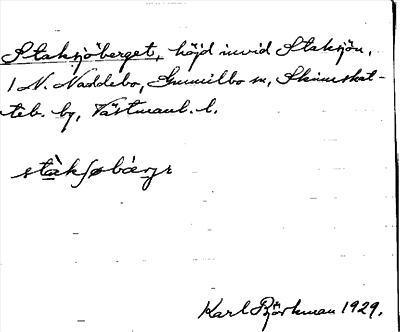 Staksjöberget, höjd invid Staksjön,
1 N. Naddebo, Gunnilbo sn, Skinnskat-
teb. bg, Västmanl. l.
stàksjøbærjɛ
Karl Björkman 1929.